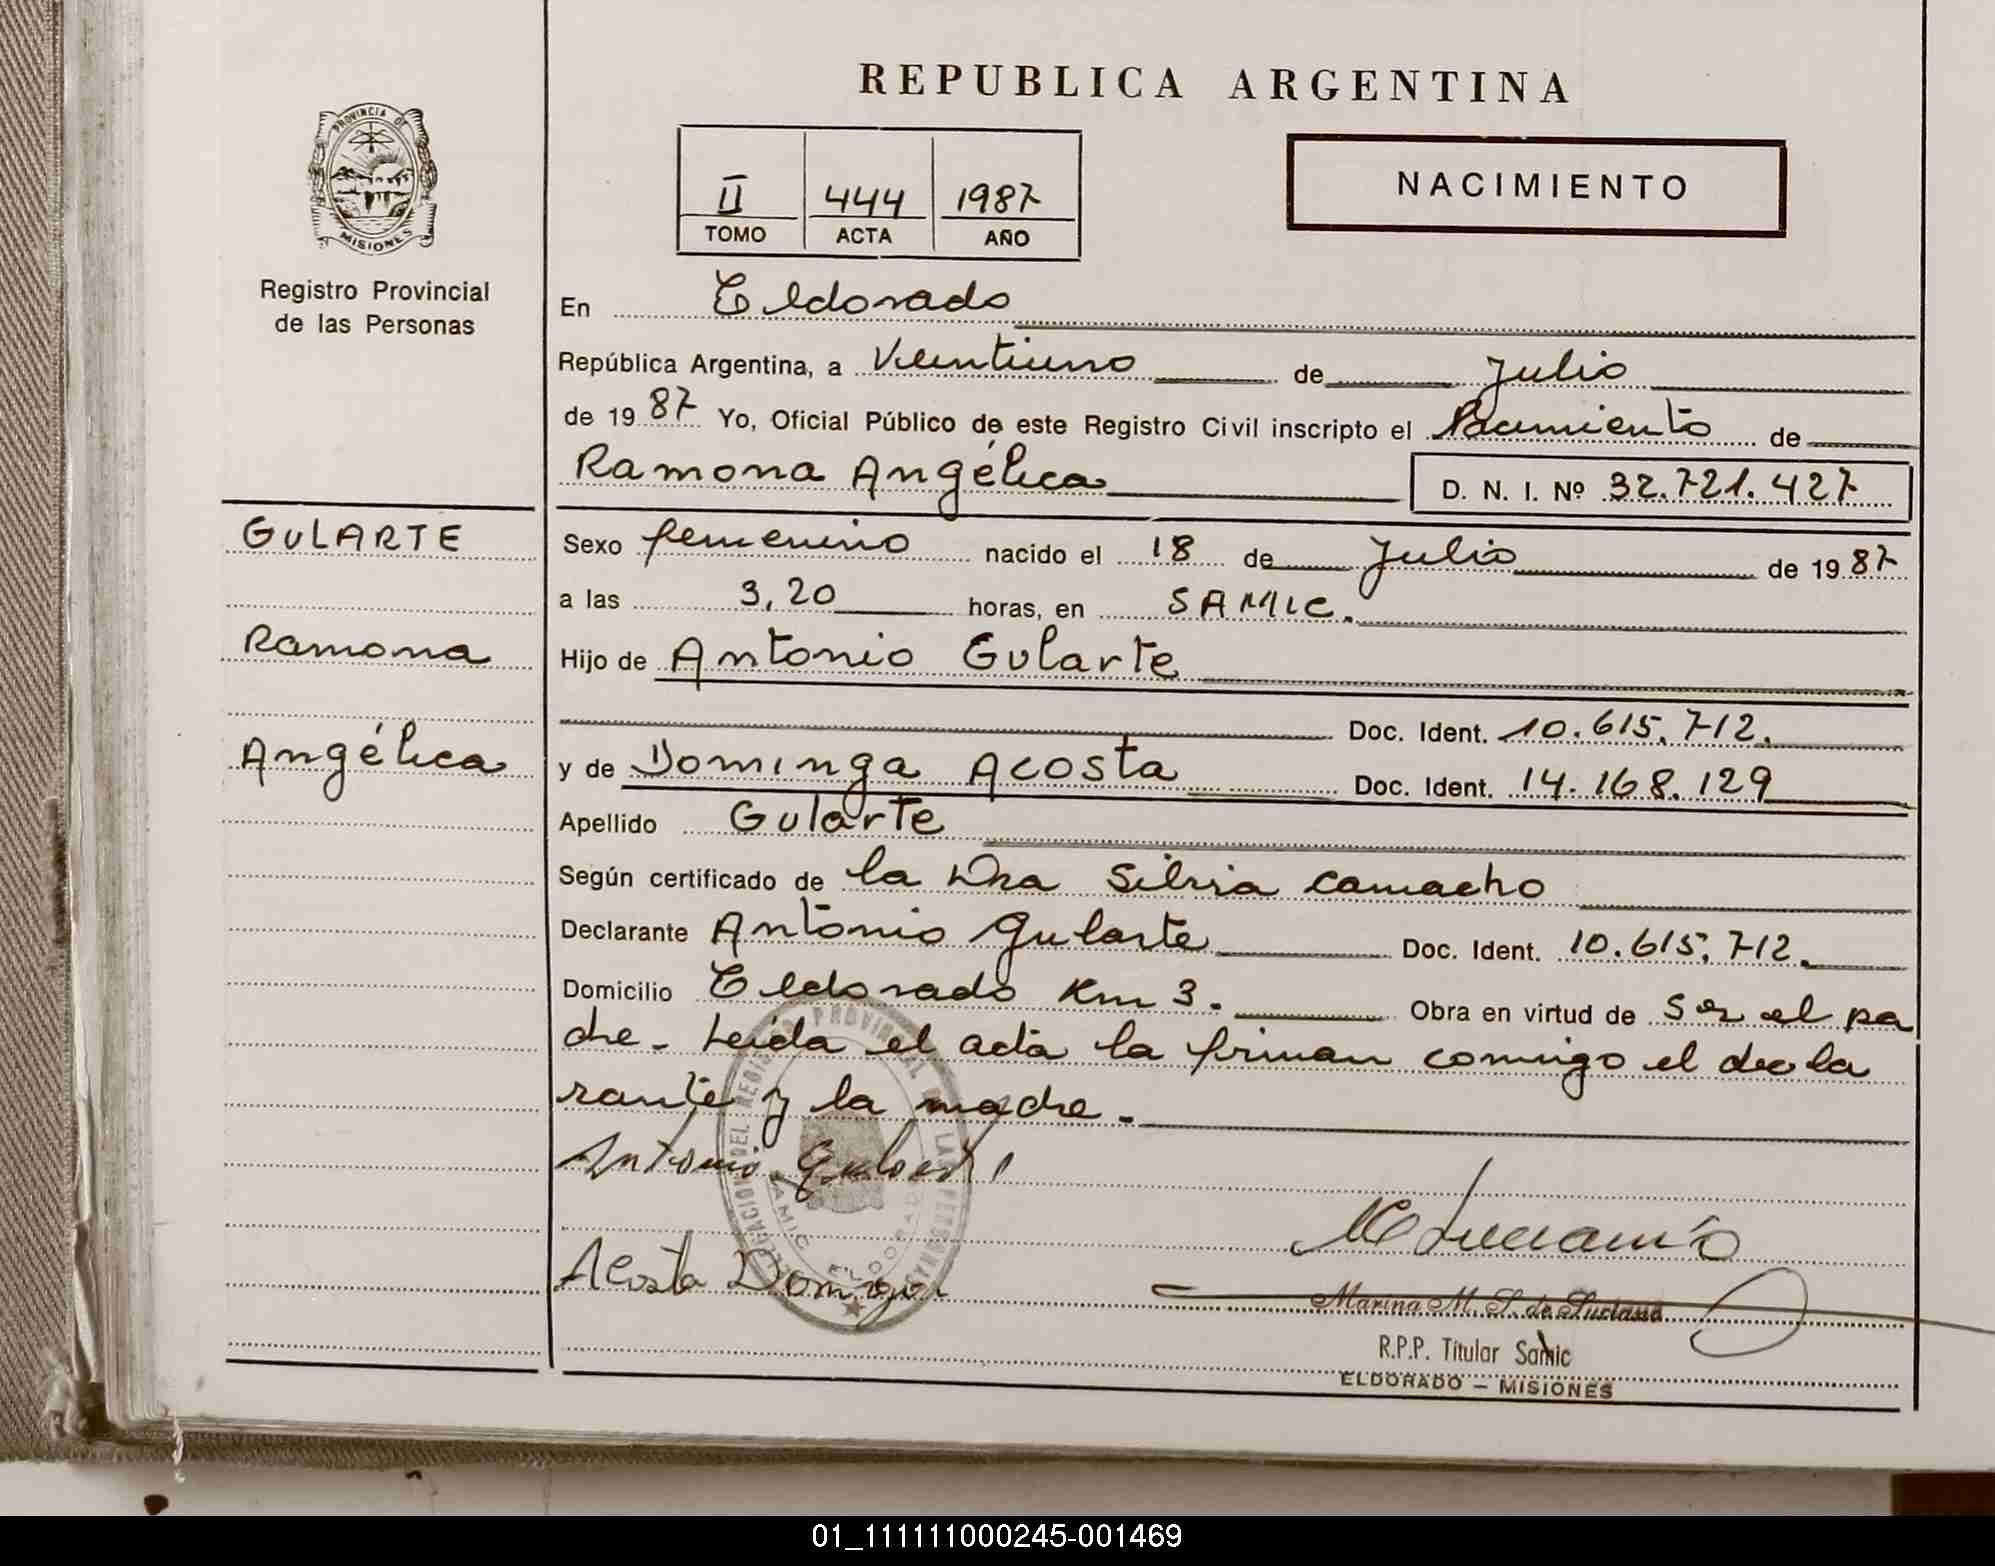 REPUBLICA ARGENTINA
PROVINCIA DE
MISIONES
Registro Provincial
de las Personas
II 444 1987
TOMO ACTA AÑO
NACIMIENTO
En Eldorado
República Argentina, a Veintiuno de Julio
de 1987 Yo, Oficial Público de este Registro Civil inscripto el Nacimiento de
Ramona Angélica D. N. I. Nº 32.721.427
GULARTE
Ramona
Angélica
Sexo femenino nacido el 18 de Julio de 1987
a las 3,20 horas, en SAMIC.
Hijo de Antonio Gularte
Doc. Ident. 10.615.712.
y de Dominga Acosta Doc. Ident. 14.168.129
Apellido Gularte
Según certificado de la Dra Silvia Camacho
Declarante Antonio Gularte Doc. Ident. 10.615.712.
Domicilio Eldorado Km 3. Obra en virtud de ser el pa
dre. Leída el acta la firman conmigo el decla
rante y la madre.
Antonio Gularte
Acosta Dominga
Marina M. S. de Luciano
R.P.P. Titular Samic
ELDORADO – MISIONES
01_111111000245-001469